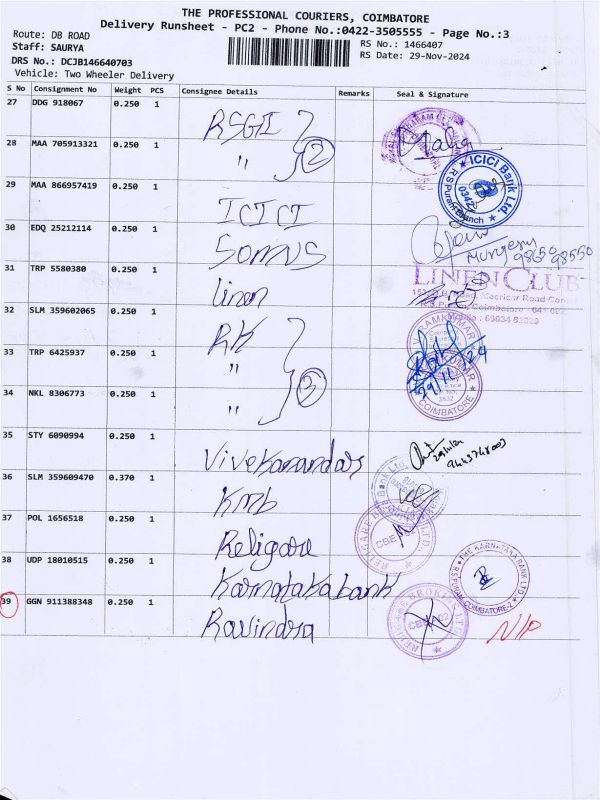 THE PROFESSIONAL COURIERS, COIMBATORE
Delivery Runsheet - PC2 - Phone No.:0422-3505555 - Page No.:3
Route: DB ROAD
RS No.: 1466407
Staff: SAURYA
RS Date: 29-Nov-2024
DRS No.: DCJB146640703
Vehicle: Two Wheeler Delivery
S No Consignment No Weight PCS Consignee Details Remarks Seal & Signature
27 DDG 918067 0.250 1 RSGI
28 MAA 705913321 0.250 1 " 2
29 MAA 866957419 0.250 1 ICICI
ICICI Bank Ltd.
R S Puram Branch
30 EDQ 25212114 0.250 1 Somus
98650 98550
31 TRP 5580380 0.250 1 linen
LINEN CLUB
32 SLM 359602065 0.250 1 RK
33 TRP 6425937 0.250 1 "
29/11/24
COIMBATORE
34 NKL 8306773 0.250 1 " 3
35 STY 6090994 0.250 1 Vivekanandas
36 SLM 359609470 0.370 1 Kmb
37 POL 1656518 0.250 1 Religare
38 UDP 18010515 0.250 1 Karnataka bank
THE KARNATAKA BANK LTD.
COIMBATORE-2
39 GGN 911388348 0.250 1 Ravindra
N/P